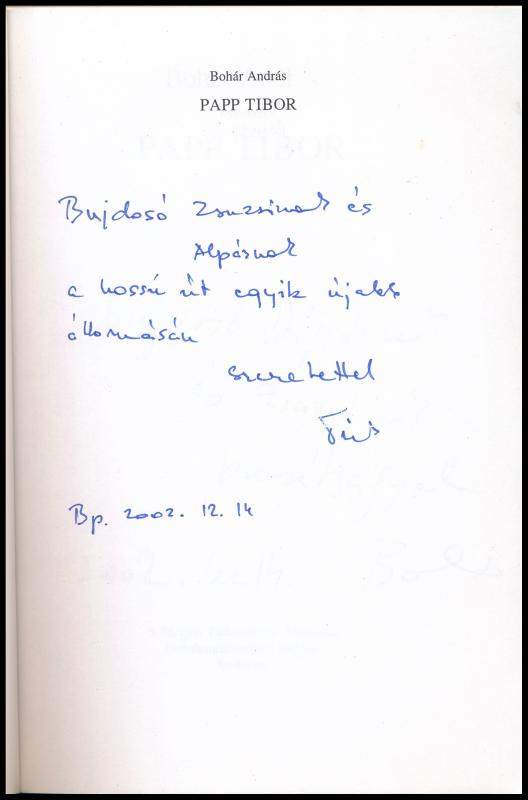 Bohár András
PAPP TIBOR
Bujdosó Zsuzsinak és
Alpárnak
a hosszú út egyik újabb
állomásán
szeretettel
Bp. 2002. 12. 14